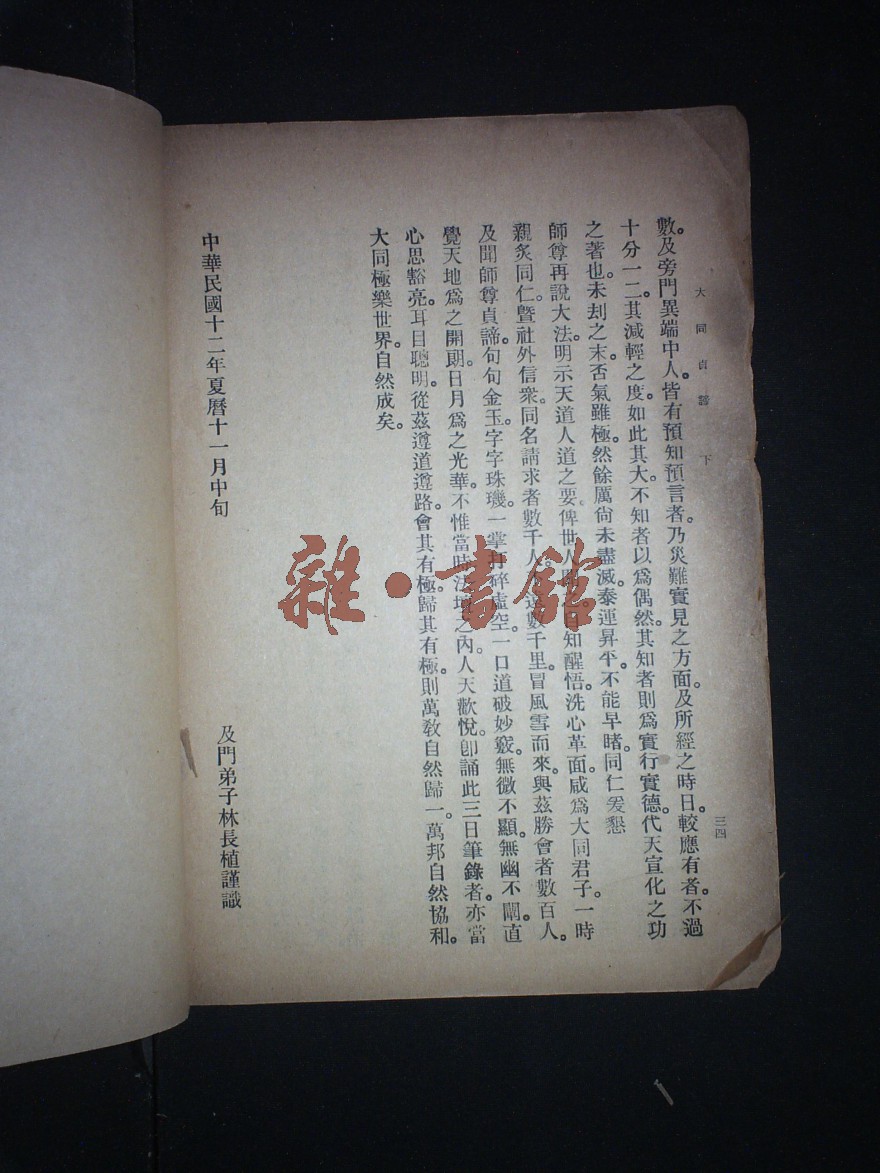 大同貞諦 下
三四
數。及旁門異端中人。皆有預知預言者。乃災難實見之方面。及所經之時日。較應有者。不過
十分一二。其減輕之度。如此其大。不知者以爲偶然。其知者則爲實行實德。代天宣化之功
之著也。未刦之末。否氣雖極。然餘厲尙未盡滅。泰運昇平。不能早睹。同仁爰懇
師尊再說大法。明示天道人道之要。俾世人 知醒悟。洗心革面。咸爲大同君子。一時
親炙同仁。曁社外信衆。同名請求者數千人。 數千里。冒風雪而來。與茲勝會者數百人。
及聞師尊貞諦。句句金玉。字字珠璣。一掌打碎虛空。一口道破妙竅。無微不顯。無幽不闡。直
覺天地爲之開朗。日月爲之光華。不惟當時法壇之內。人天歡悅。卽誦此三日筆錄者。亦當
心思豁亮。耳目聰明。從茲遵道遵路。會其有極。歸其有極。則萬敎自然歸一。萬邦自然協和。
大同極樂世界。自然成矣。
中華民國十二年夏曆十一月中旬
及門弟子林長植謹識
雜·書館